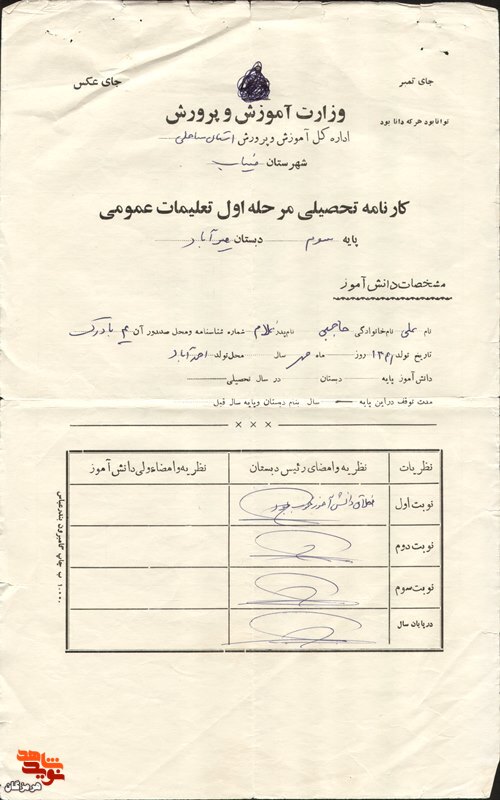 جای تمبر
جای عکس
توانا بود هر که دانا بود
وزارت آموزش و پرورش
اداره کل آموزش و پرورش استان ساحلی
شهرستان میناب
کارنامه تحصیلی مرحله اول تعلیمات عمومی
پایه سوم دبستان
مشخصات دانش آموز
نام علی نام خانوادگی حاجبی نام پدر غلام شماره شناسنامه و محل صدور آن
تاریخ تولد ۱۳۴۱ روز ماه مهر سال محل تولد احمدآباد
دانش آموز پایه دبستان در سال تحصیلی
مدت توقف در این پایه — سال بنام دبستان و پایه سال قبل
× × ×
نظریات نظریه و امضای رئیس دبستان نظریه و امضاء ولی دانش آموز
نوبت اول اخلاق دانش آموز خوب
نوبت دوم
نوبت سوم
در پایان سال
۱۰۰۰ ب چاپ کامرون بندرعباس
نوید شاهد
هرمزگان